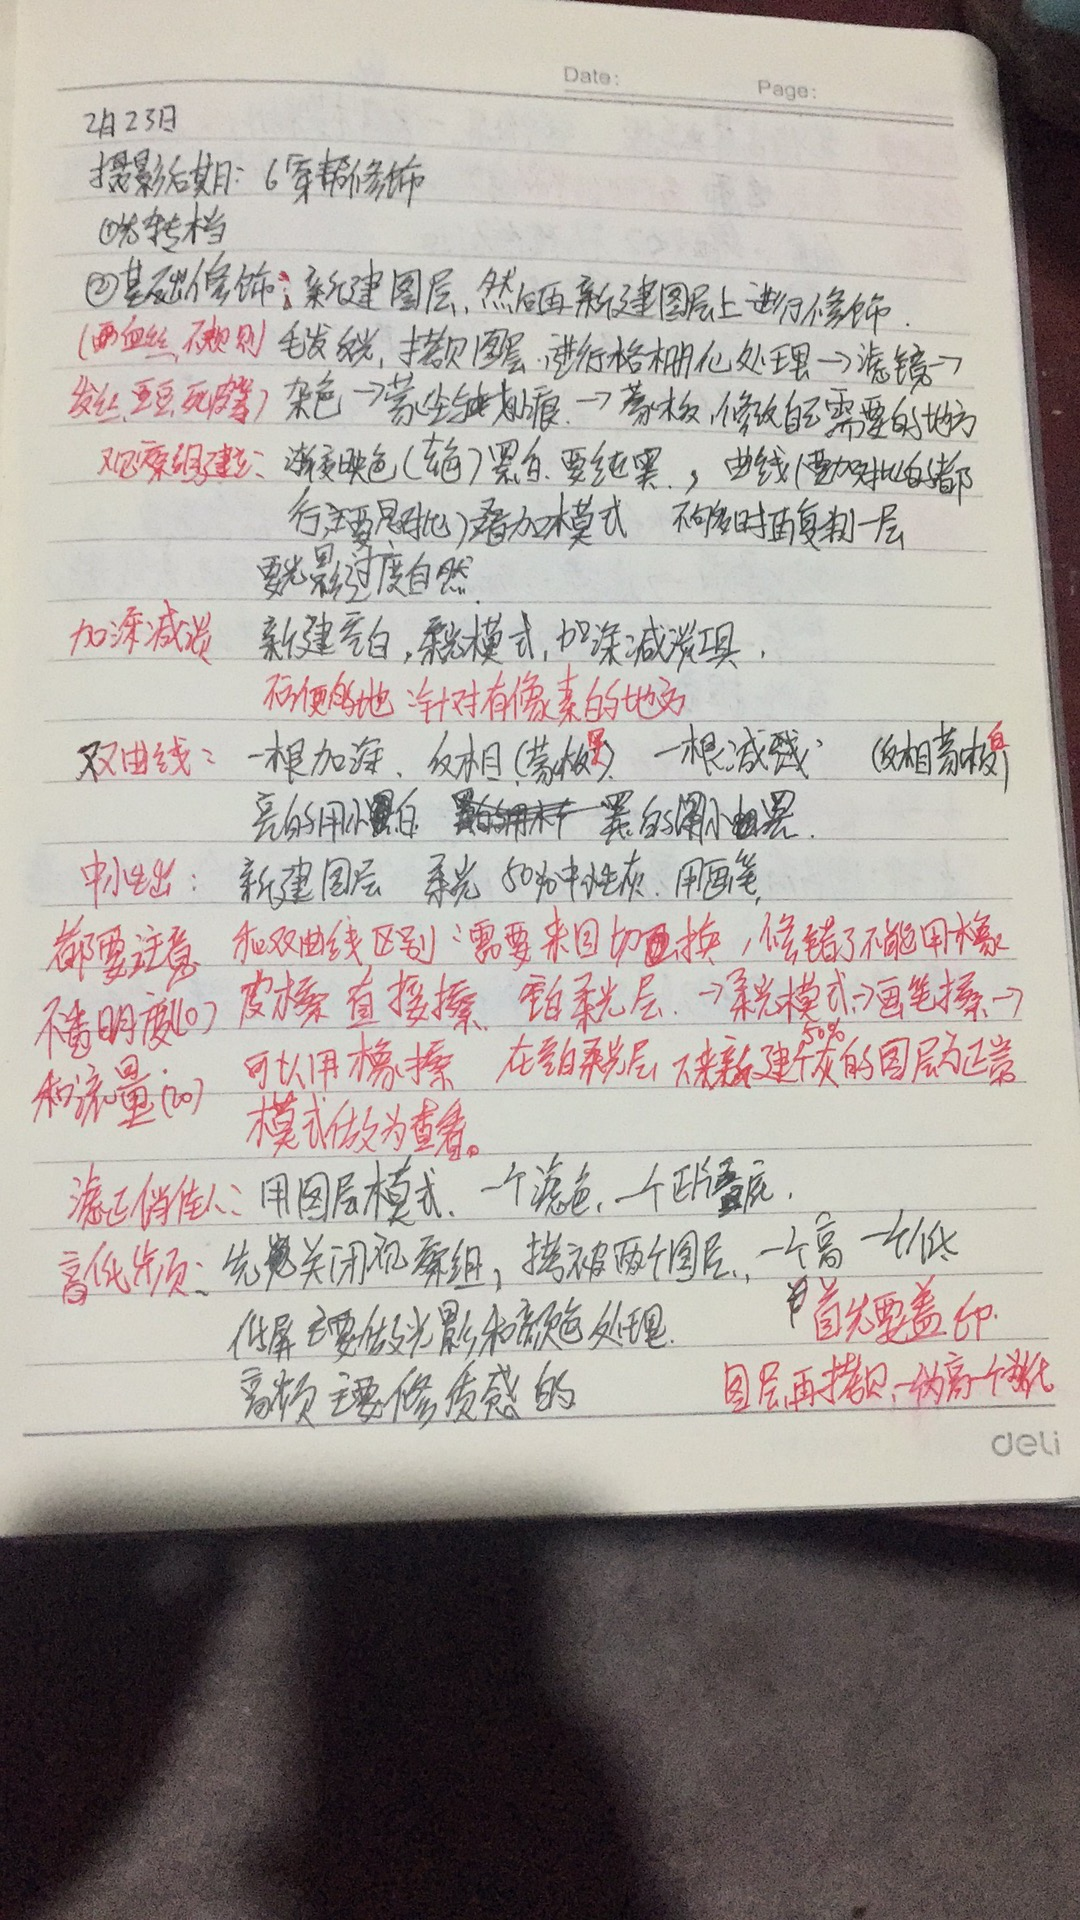 Date:
Page:
2月23日
摄影后期: 6 穿帮修饰
①先转档
②基础修饰: 新建图层, 然后再新建图层上进行修饰.
(血丝, 不规则) 毛发, 拷贝图层, 进行格栅化处理→滤镜→
发丝, 豆豆, 死皮等) 杂色→蒙尘与划痕.→蒙板, 修改自己需要的地方
观察组建立: 渐变映色(去色) 黑白. 要纯黑., 曲线(要加对比的都
行, 主要是对比) 叠加模式 不够时再复制一层
要光影过度自然.
加深减淡 新建空白, 柔光模式, 加深减淡工具.
不便的地: 针对有像素的地方
双曲线: 一根加深. 反相(蒙板黑). 一根减淡: (反相蒙板
亮的用小白 黑的用小黑.
中性: 新建图层 柔光 50%中性灰. 用画笔.
都要注意 和双曲线区别: 需要来回切换, 修错了不能用橡
不透明度(10) 皮擦 直接擦. 空白柔光层.→柔光模式→画笔擦.→
和流量(20) 可以用橡擦 在空白柔光层 新建个50%灰的图层为正常
模式做为查看。
用图层模式. 一个滤色. 一个正片叠底.
高低频: 先关闭观察组, 拷被两个图层, 一个高 一个低
低屏主要做光影和颜色处理. 首先要盖印.
高频主要修质感的 图层再拷贝一高一个低
deli